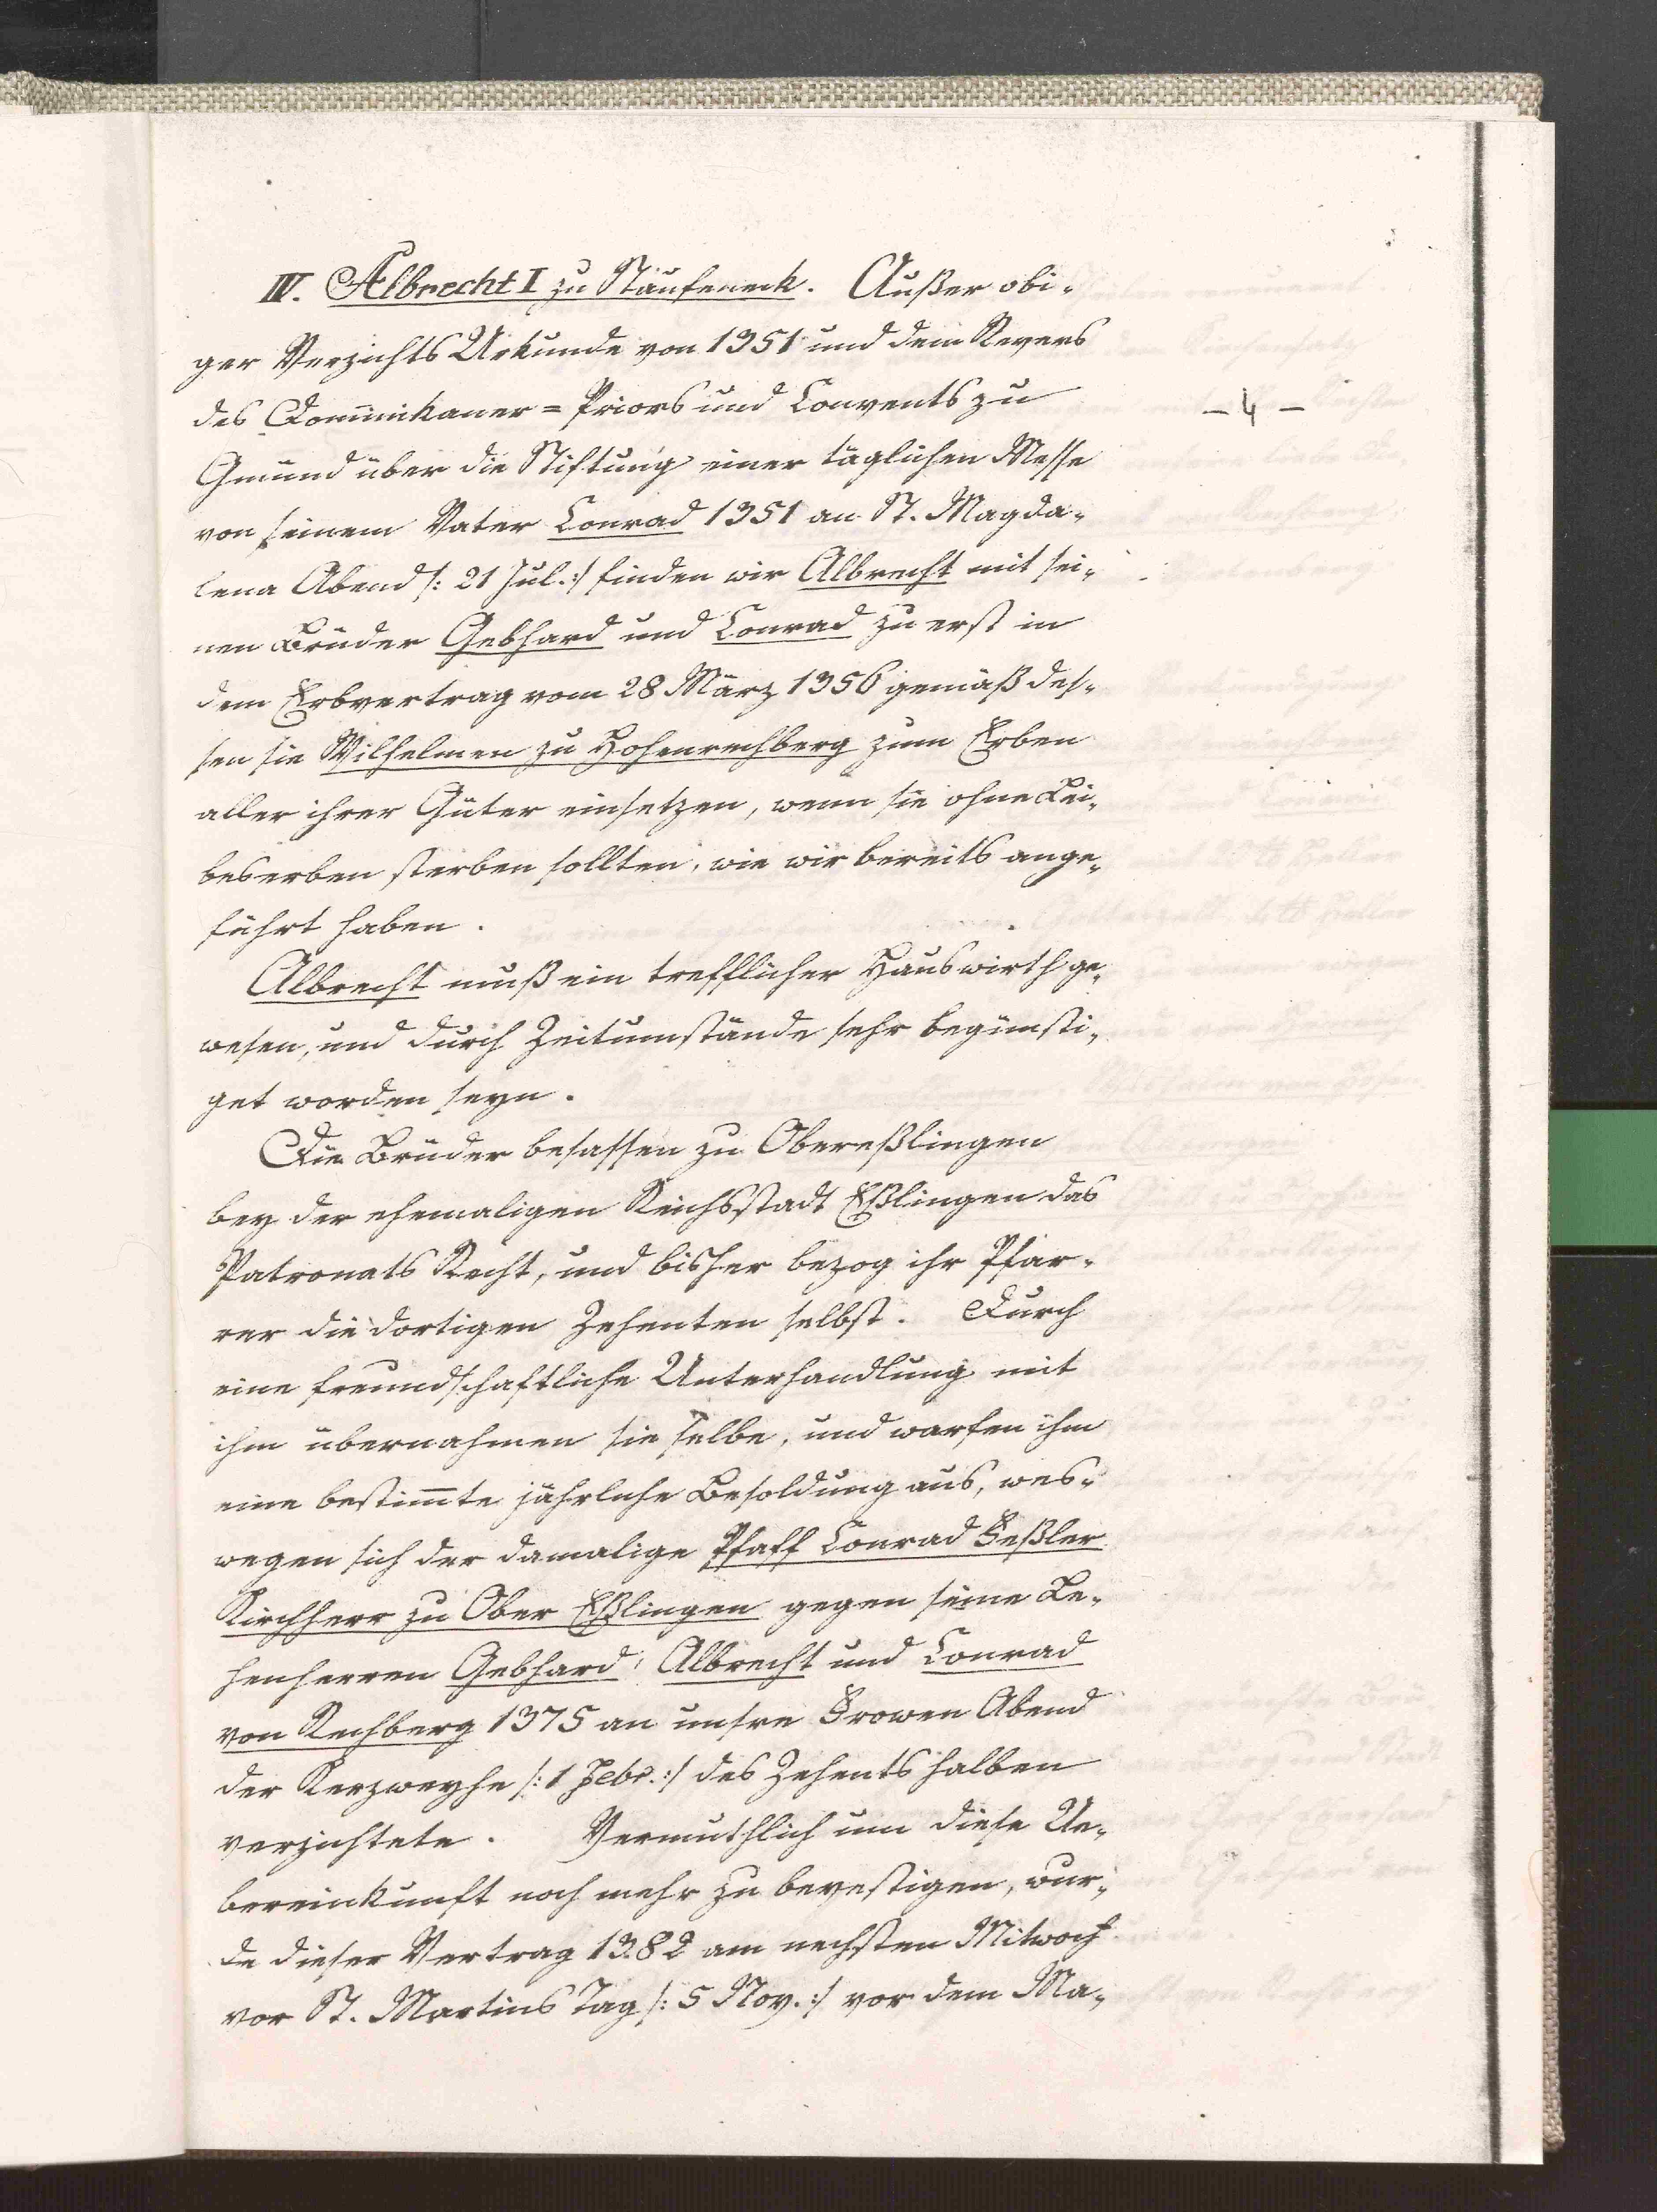 IV. Albrecht I zu Staufeneck. Außer obi-
ger Verzichts Urkunde von 1351 und dem Revers
des Dominikaner=Priors und Convents zu
- 4 -
Gmünd über die Stiftung einer täglichen Messe
von seinem Vater Conrad 1351 an St. Magda-
lena Abend /: 21 Jul. :/ finden wir Albrecht mit sei-
nen Brüder Gebhard und Conrad zu erst in
dem Erbvertrag vom 28 März 1356 gemäß des-
sen sie Wilhelmen zu Hohenrechberg zum Erben
aller ihrer Güter einsetzen, wenn sie ohne Lei-
beserben sterben sollten, wie wir bereits ange-
führt haben.
Albrecht muß ein trefflicher Hauswirth ge-
wesen, und durch Zeitumstände sehr begünsti-
get worden seyn.
Die Brüder besassen zu Obereßlingen
bey der ehemaligen Reichsstadt Eßlingen das
Patronats Recht, und bisher bezog ihr Pfar-
rer die dortigen Zehenten selbst. Durch
eine freundschaftliche Unterhandlung mit
ihm übernahmen sie selbe, und warfen ihm
eine bestimte jährliche Besoldung aus, wes-
wegen sich der damalige Pfaff Conrad Feßler
Kirchherr zu Ober Eßlingen gegen seine Le-
henherren Gebhard, Albrecht und Conrad
von Rechberg 1375 an unsre Frowen Abend
der Kerzweyhe /: 1 Febr. :/ des Zehents halben
verzichtete. Vermuthlich um diese Ue-
bereinkunft noch mehr zu bevestigen, wur-
de dieser Vertrag 1382 am nechsten Mitwoch
vor St. Martins Tag /: 5 Nov. :/ vor dem Ma-